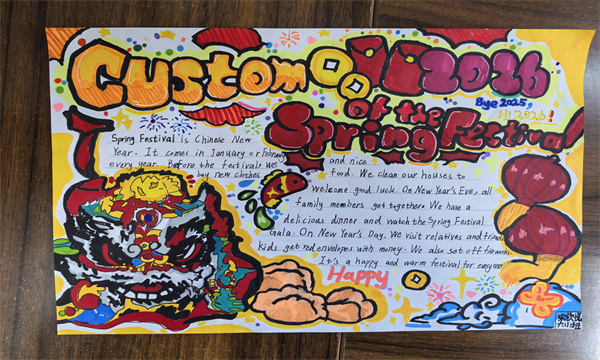 Custom 2026
Bye 2025
Hi 2026!
of the
Spring Festival
Spring Festival is Chinese New
Year. It comes in January or February
every year. Before the festival, we
buy new clothes
and nice
food. We clean our houses to
welcome good luck. On New Year's Eve, all
family members get together. We have a
delicious dinner and watch the Spring Festival
Gala. On New Year's Day, we visit relatives and friends
kids get red envelopes with money. We also set off fireworks.
It's a happy and warm festival for everyone
Happy